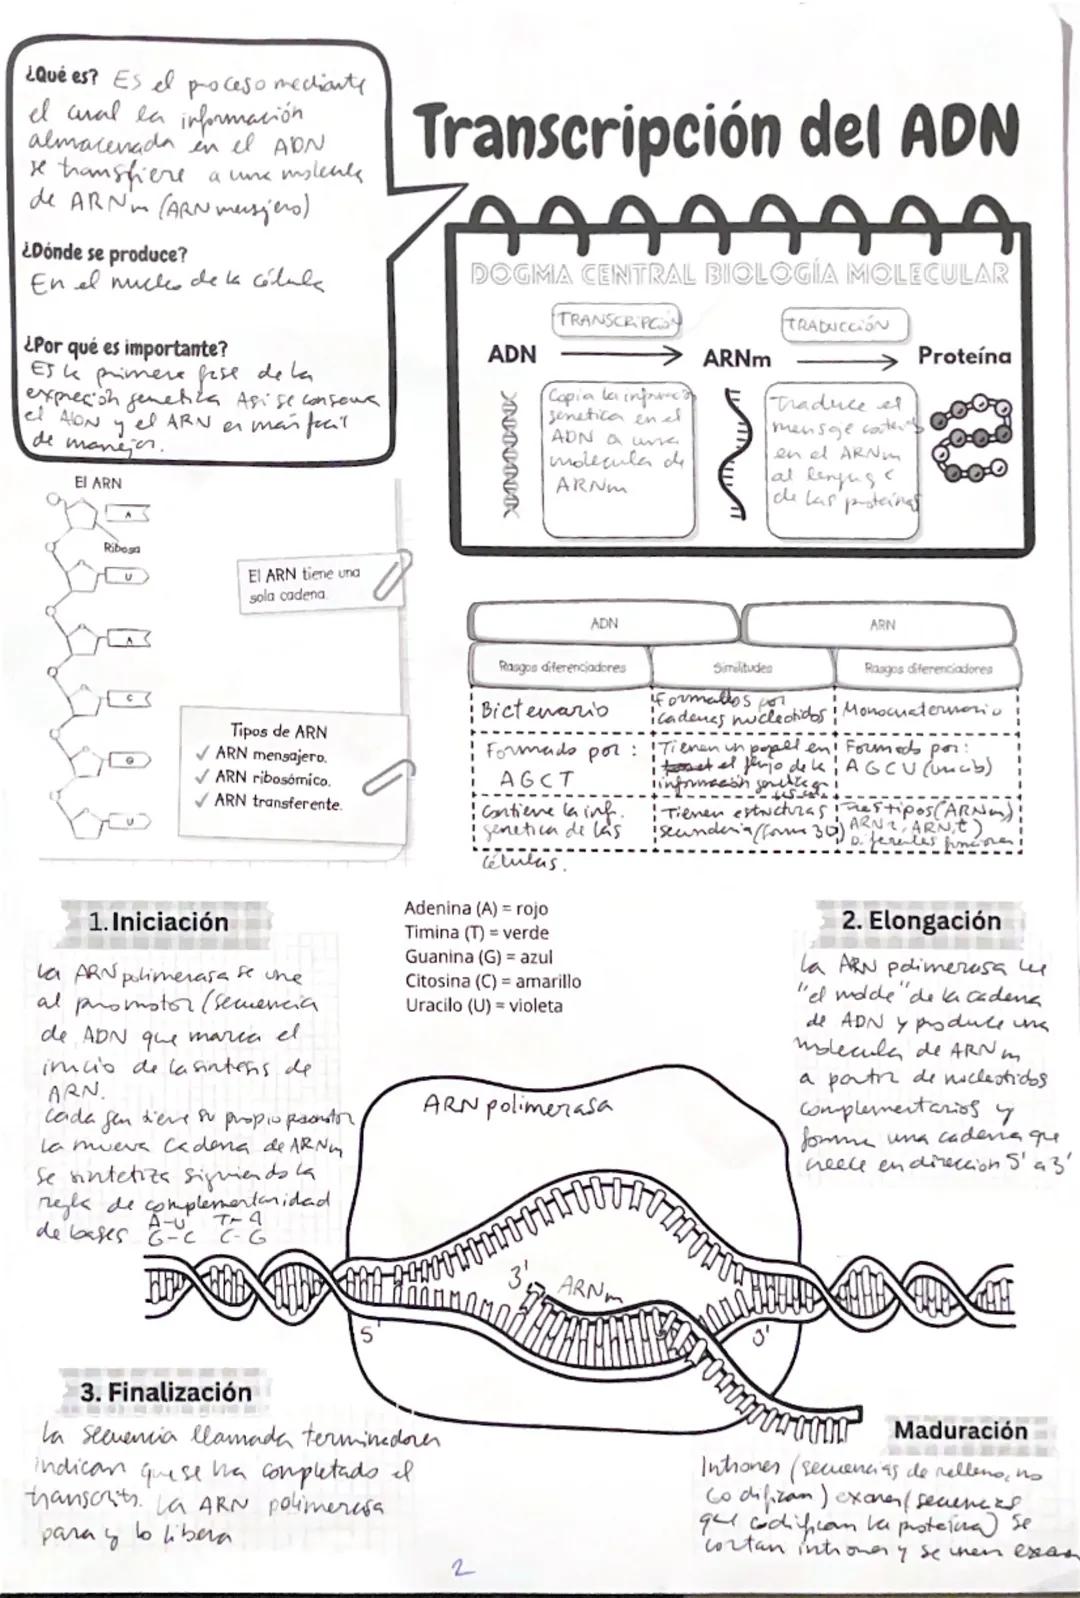 ¿Qué es? Es el proceso mediante
el cual la información
almacenada en el ADN
se transfiere a una molécula
de ARNm (ARN mensajero)
¿Dónde se produce?
En el nucleo de la célula
¿Por qué es importante?
Es la primera fase de la
expreción genetica Asi se conserva
el ADN y el ARN es más facil
de manejar.
Transcripción del ADN
DOGMA CENTRAL BIOLOGÍA MOLECULAR
TRANSCRIPCIÓN
TRADUCCIÓN
ADN
ARNm
Proteína
Copia la información
genetica en el
ADN a una
molecula de
ARNm
Traduce el
mensaje
en el ARNm
al lenguaje
de las proteinas
El ARN
A
Ribosa
U
A
C
G
U
El ARN tiene una
sola cadena.
Tipos de ARN
✓ ARN mensajero.
✓ ARN ribosómico.
✓ ARN transferente.
ADN
ARN
Rasgos diferenciadores
Similitudes
Rasgos diferenciadores
Bictenario
Formados por
cadenas nucleotidos
Monocuaternario
Formado por:
AGCT
Tienen un papel en
el flujo de la
información genetica
Formado por:
AGCU
Contiene la inf.
genetica de las
células.
Tienen estructuras
secundaria (forma 3D)
Tres tipos (ARNm,
ARNr, ARNt)
Diferentes funciones
1. Iniciación
La ARN polimerasa se une
al promotor (secuencia
de ADN que marca el
inicio de la sintesis de
ARN.
Cada gen tiene su propio promotor
La nueva cadena de ARNm
se sintetiza siguiendo la
regla de complementaridad
de bases A-U T-A
G-C C-G
Adenina (A) = rojo
Timina (T) = verde
Guanina (G) = azul
Citosina (C) = amarillo
Uracilo (U) = violeta
2. Elongación
La ARN polimerasa lee
"el molde" de la cadena
de ADN y produce una
molecula de ARNm
a partir de nucleotidos
complementarios y
forma una cadena que
crece en direccion 5' a 3'
ARN polimerasa
3'
ARNm
5'
3'
3. Finalización
La secuencia llamada terminadores
indican que se ha completado el
transcrito. La ARN polimerasa
para y lo libera
Maduración
Intrones (secuencias de relleno, no
codifican) exones (secuencias
que codifican la proteina) se
cortan intrones y se unen exones
2